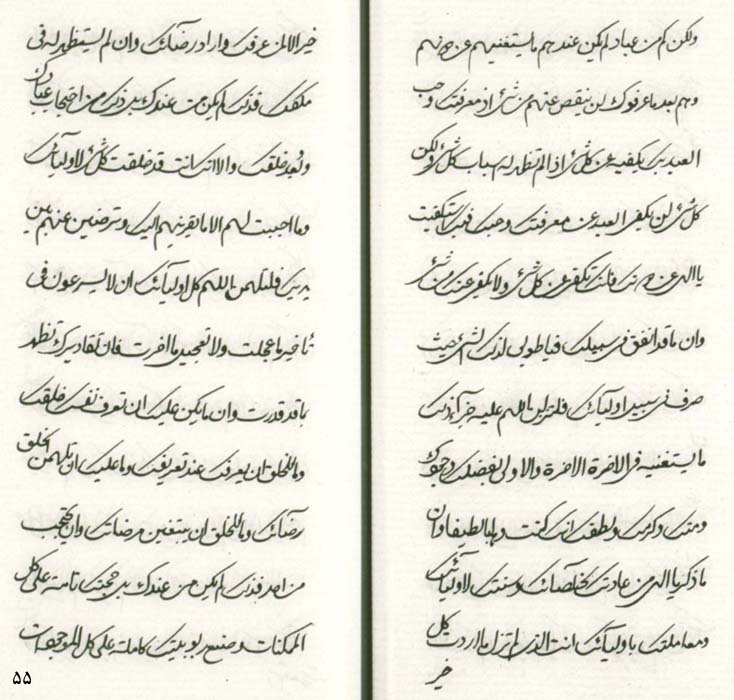 ولكن كم من عباد لم يكن عندهم ما يستغنيهم عن دونهم
وهم بعد ما عرفوك لن ينقص عنهم من شئ اذ معرفتك وحب
العبد بك يكفيه عن كل شئ اذا لم تظهر له اسباب كل شئ ولكن
كل شئ لن يكفى العبد عن معرفتك وحبك فبك استكفيت
يا الهى عن دونك فانك تكفى عن كل شئ ولا يكفى عنك من شئ
وان ما قد انفق فى سبيلك فيا طوبى لذلك الشئ حيث
صرف فى سبيل اوليائك فلتنزلن اللهم عليه جزاء ذلك
ما يستغنيه فى الاخرة والاولى بفضلك وجودك
ومنك وكرمك ولطفك انك كنت وهابا لطيفا وان
ما ذكر يا الهى من عادتك بخلصائك وسنتك لاوليائك
ومعاملتك باوليائك انت الذى لم تزل ما اردت كل
خير
خير الا لمن عرفك واراد رضائك وان لم يستظهر له فى
ملكك فذلك لم يكن من عندك بل ذلك من احتجاب عبادك
وبعد خلقك والا انك انت قد خلقت كل شئ لاوليائك
وما احببت لهم الا ما يقربنهم اليك وترضين عنهم بين
يديك فلتلهمن اللهم كل اوليائك ان لا يسرعون فى
تأخير ما عجلت ولا تعجيل ما اخرت فان تقاديرك تظهر
بما قد قدرت وان ما يكن عليك ان تعرف نفسك خلقك
وما للخلق ان يعرفك عند تعريفك وما عليك ان تلهمن الخلق
رضائك وما للخلق ان يبتغين مرضاتك وان يحتجب
من احد فذلك لم يكن من عندك بل حجتك تامة على كل
الممكنات وصنع ربوبيتك كاملة على كل الموجودات
٥٥